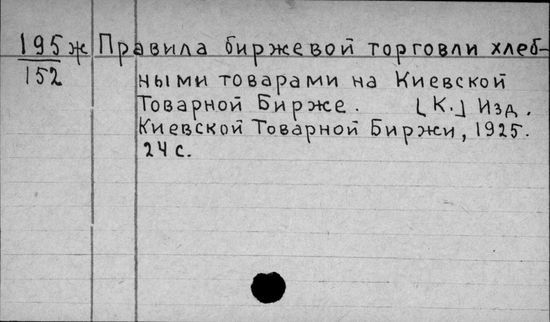 195ж Правила биржевой торговли хлеб-
152 ными товарами на Киевской
Товарной Бирже. [К.] Изд.
Киевской Товарной Биржи, 1925.
24 с.